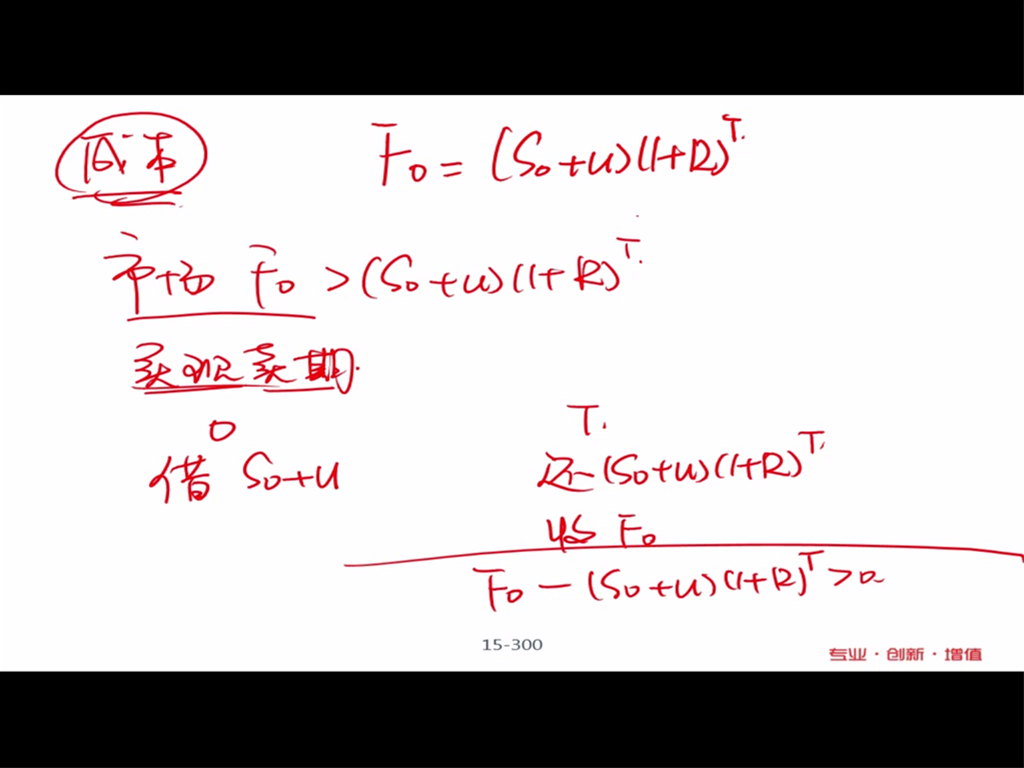 成本 F₀ = (S₀+u)(1+R)ᵀ
市场 F₀ > (S₀+u)(1+R)ᵀ
买现卖期
0 T
借 S₀+u 还 (S₀+u)(1+R)ᵀ
收 F₀
F₀ − (S₀+u)(1+R)ᵀ > 0
15-300
专业·创新·增值